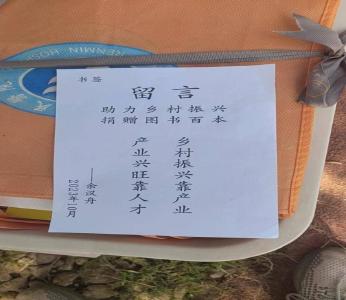 书签
留言
助力乡村振兴
捐赠图书百本
乡村振兴靠产业
产业兴旺靠人才
——余汉舟
2023年10月